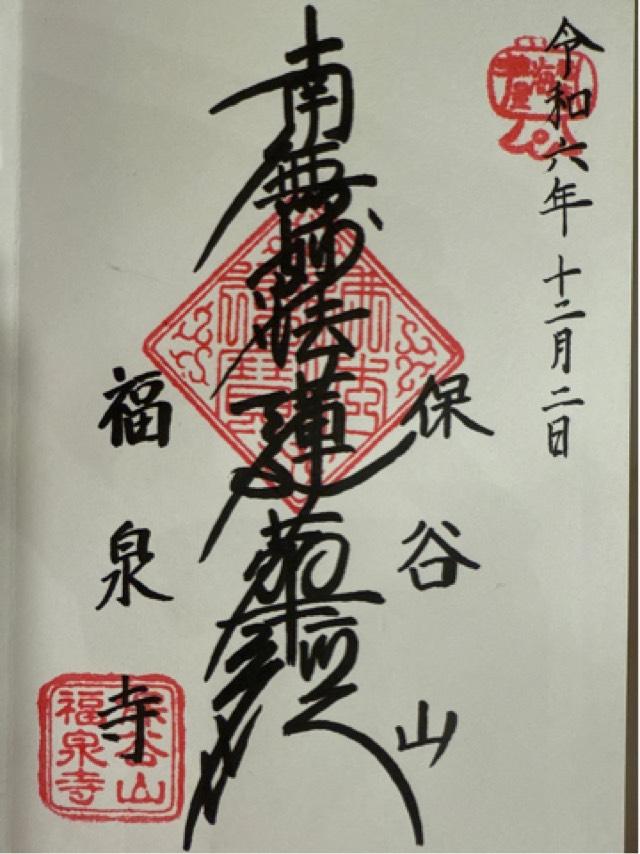 令和六年十二月二日
保谷山
南無妙法蓮華経
福泉寺
保谷山
福泉寺